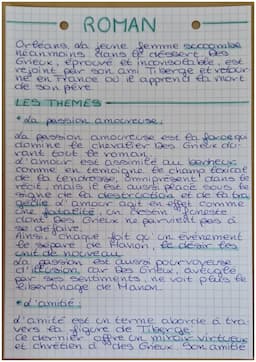 ROMAN
Orléans, la jeune femme succombe
néanmoins dans le désert. Des
Grieux, éprouvé et inconsolable, est
rejoint par son ami Tiberge et retour
ne en France où il apprend la mort
de son père.
LES THEMES
• La passion amoureuse :
La passion amoureuse est la force qui
domine le chevalier Des Grieux du-
rant tout le roman.
L'amour est assimilé au bonheur
comme en témoigne le champ lexical
de la tendresse, omniprésent dans le
récit, mais il est aussi placé sous le
signe de la destruction et de la tra
gédie. L'amour agit en effet comme
une fatalité, un destin funeste
dont Des Grieux ne parvient pas à
se défaire.
Ainsi, chaque fois qu'un événement
le sépare de Manon, le désir les
unit de nouveau.
La passion est aussi pourvoyeuse
d'illusion car Des Grieux, aveuglé
par ses sentiments, ne voit pas le
libertinage de Manon.
• L'amitié :
L'amitié est un terme abordé à tra-
vers la figure de Tiberge.
Ce dernier offre un miroir vertueux
et chrétien à Des Grieux. Son amitié